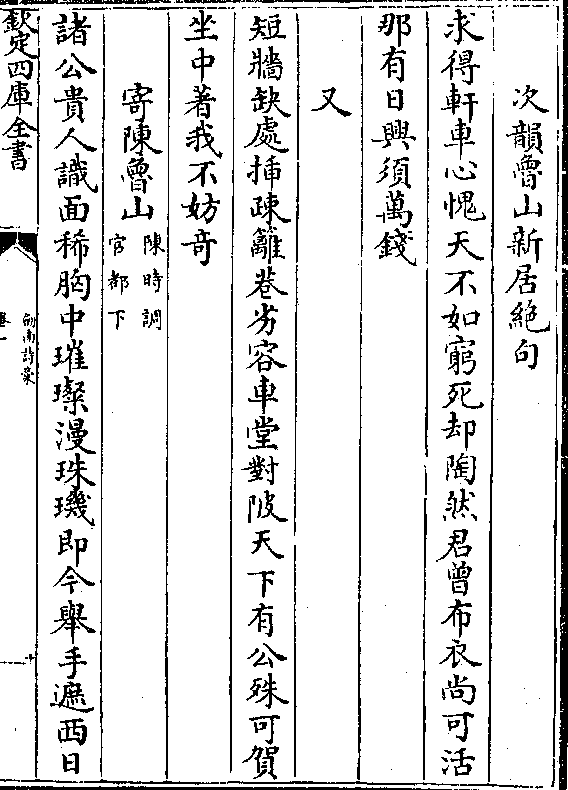 次韻魯山新居絶句
求得軒車心愧天不如窮死却陶然君曾布衣尚可活
那有日興須萬錢
又
短牆缺處插疎籬巷劣容車堂對陂天下有公殊可賀
坐中著我不妨竒
寄陳魯山陳時調官都下
諸公貴人識面稀胸中璀璨漫珠璣即今舉手遮西日
欽定四庫全書
劔南詩稾
卷一